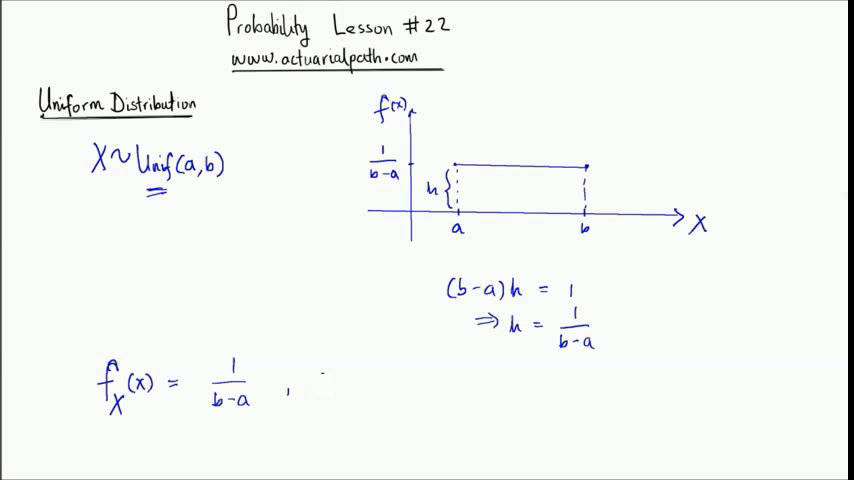 Probability Lesson #22
www.actuarialpath.com
Uniform Distribution
X ~ Unif(a,b)
f(x)
1/(b-a)
h
a
b
X
(b-a)h = 1
⇒ h = 1/(b-a)
f_X(x) = 1/(b-a) ,